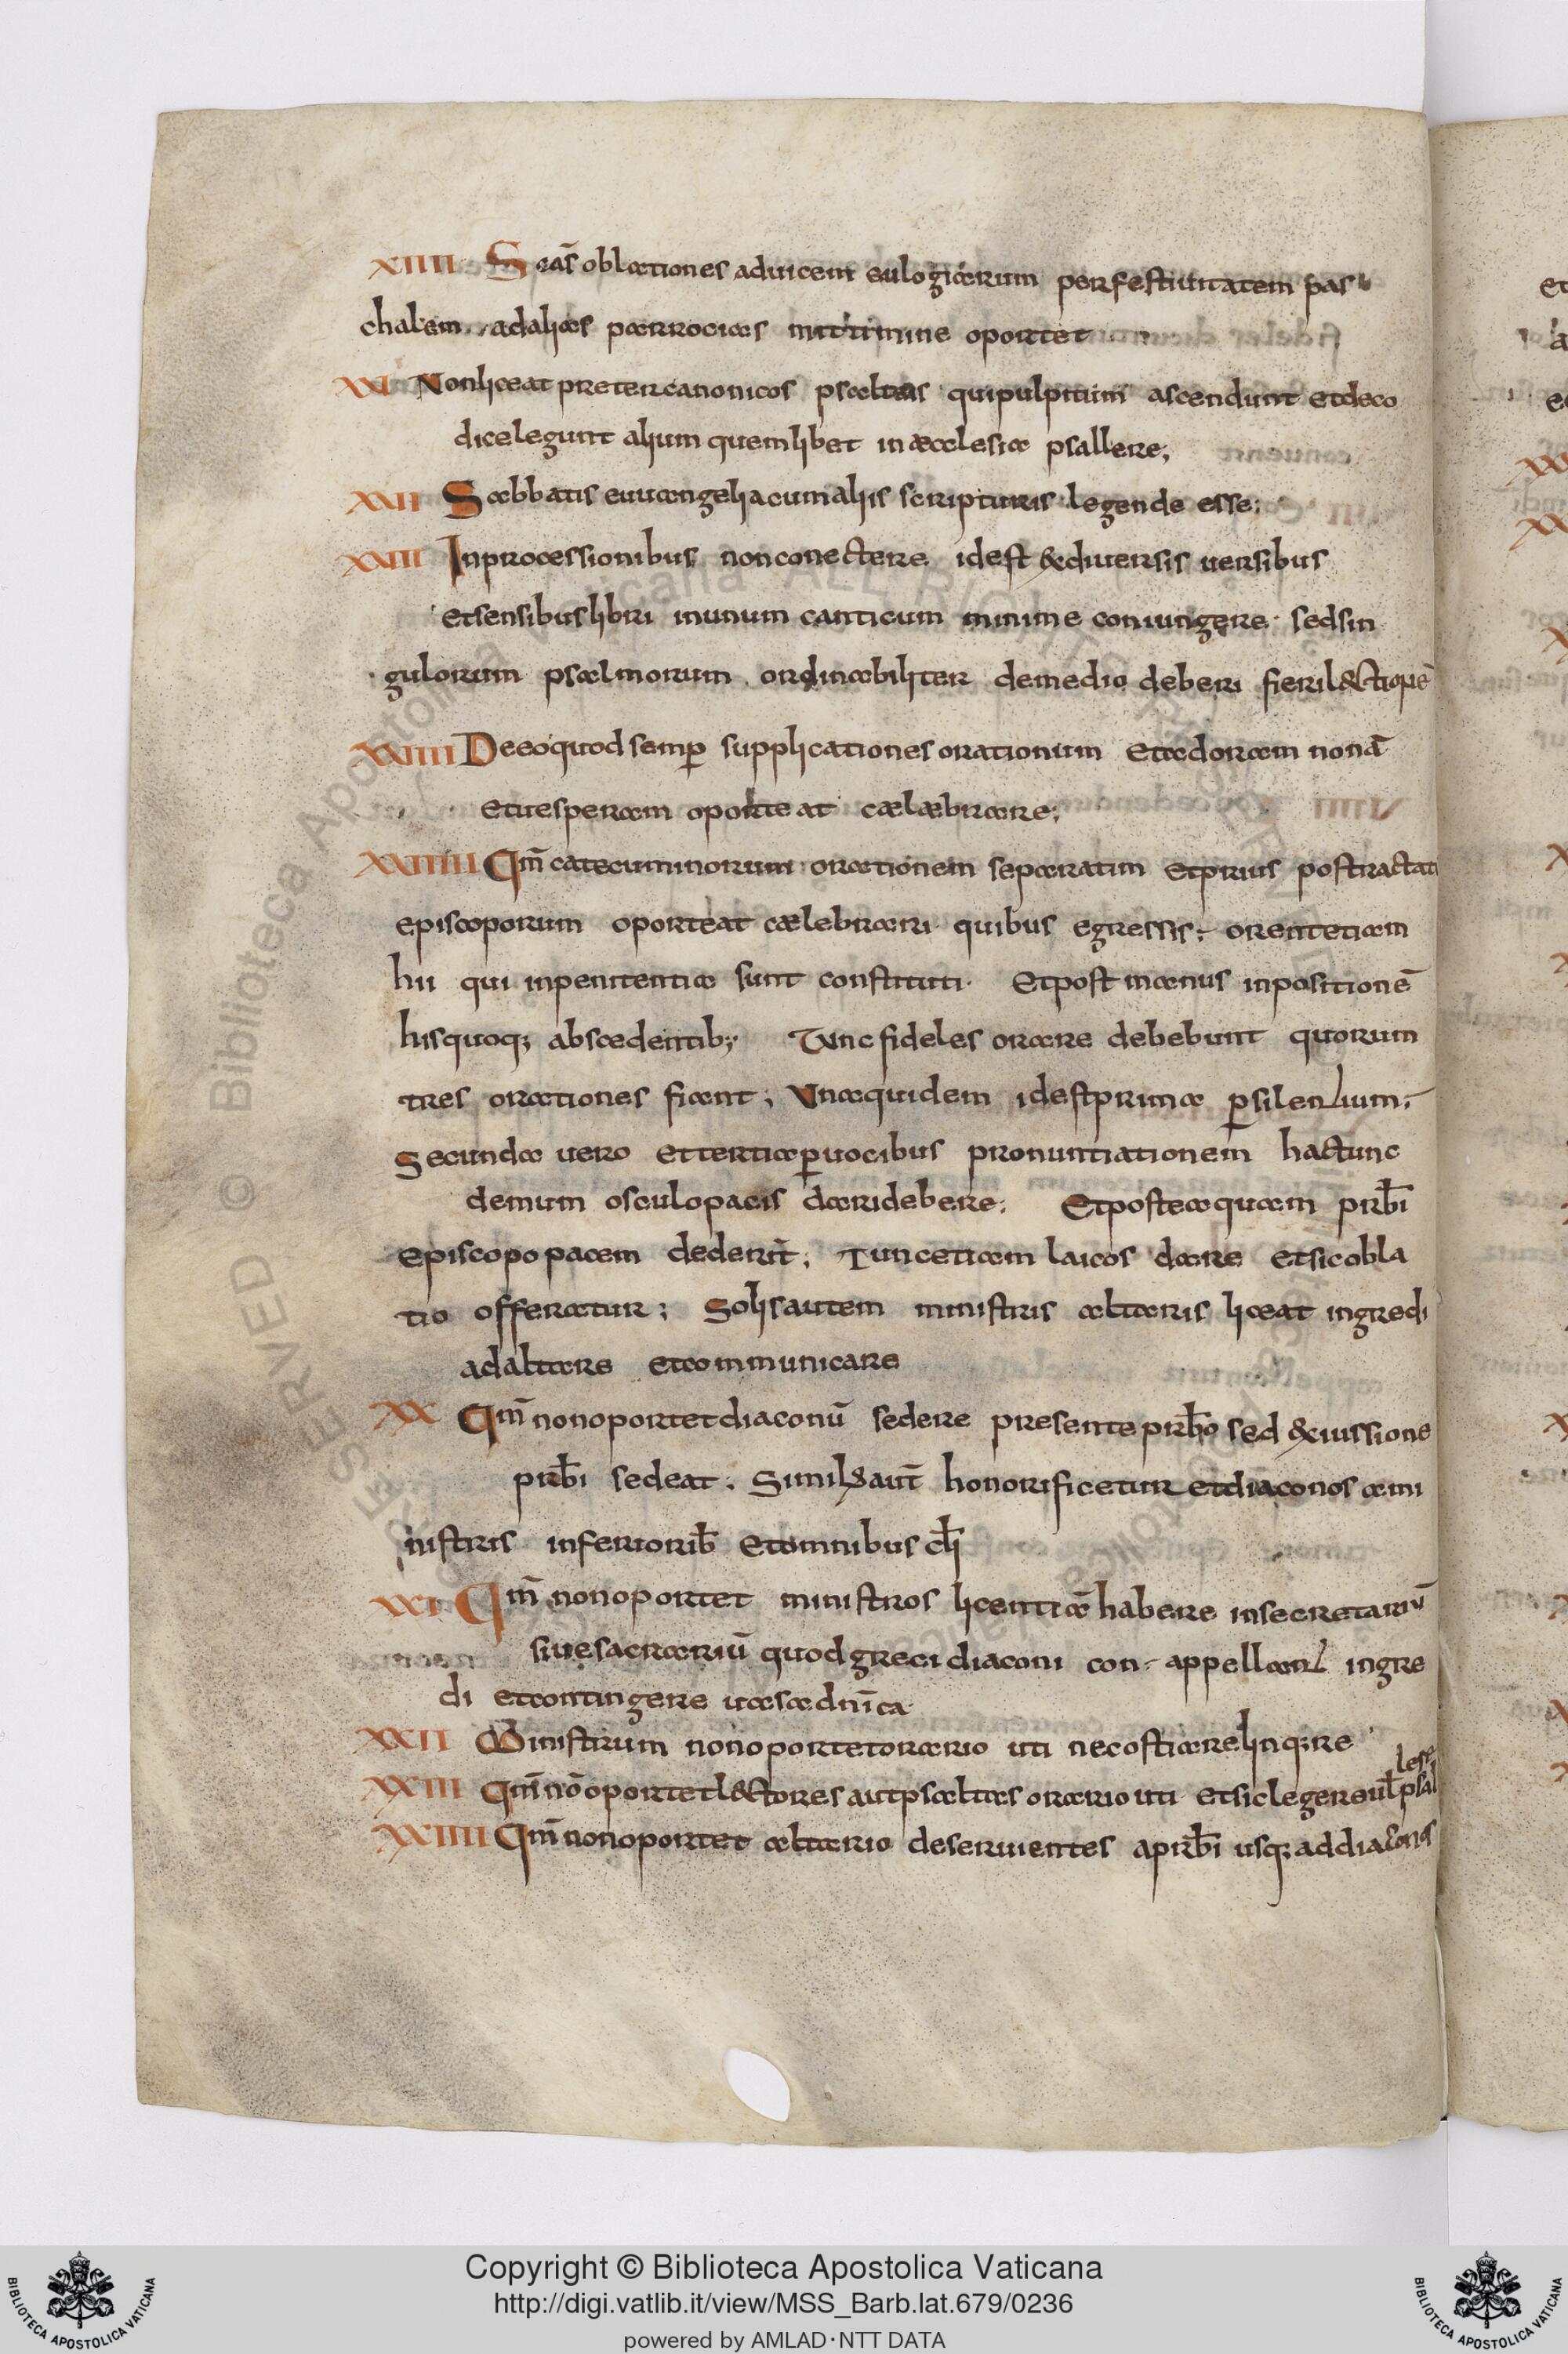 XIIII S c̄as oblationes aduicem eulogiarum per festiuitatem pas
chalem adalias parrocias mittimine oportet
XXI Nonliceat preter canonicos psaltas qui pulpitum ascendunt etdeco
dicelegunt alium quemlibet in aecclesia psallere;
XXII Sabbatis euuangelia cum aliis scripturis legende esse;
XXIII Inprocessionibus non conectere idest &diuersis uersibus
etsensibus libri inunum canticum minime coniungere sedsin
gulorum psalmorum ordinabiliter demedio deberi fieri l&ctionē
XXIIII Deeo quod semp̄ supplicationes orationum etadoram nonā
etuesperam oporteat caelaebrare;
XXIIIII Qm̄ catecuminorum orationem separatim etprius post tractatu
episcoporum oporteat caelebrari quibus egressis; orentetiam
hii qui inpenitentia sunt constituti. Etpost manus inpositionē
hisquoq; abscedentib; Tunc fideles orare debebunt quorum
tres orationes fiant; Vnaquidem idestprima p̄silentium;
Secunda uero ettertia p̄uocibus pronuntiationem hactunc
demum osculopacis daridebere; Etposteaquam prb̄i
episcopo pacem dederit; Tuncetiam laicos dare etsicobla
tio offeratur; Solisautem ministris altaris liceat ingredi
adaltare etcommunicare
XX Qm̄ nonoportetdiaconū sedere presente prb̄o sed &iussione
prb̄i sedeat. Simil& aut̄ honorificetur etdiaconos ami
nistris inferiorib̄ Etomnibus cl̄i
XXI Qm̄ nonoportet ministros licentiā habere insecretariū
siuesacrariū quodgreci diaconi con appellant ingre
di etcontingere uasadn̄ica
XXII Ministrum nonoportetorario uti necostiarelinq;re
XXIII Qm̄ nōoportetl&ctores autpsaltas orario uti etsiclegereul̄ psal
lere
XXIIII Qm̄ nonoportet altario deseruientes aprb̄i usq; addiaconos
Copyright © Biblioteca Apostolica Vaticana
http://digi.vatlib.it/view/MSS_Barb.lat.679/0236
powered by AMLAD·NTT DATA
BIBLIOTECA APOSTOLICA VATICANA
BIBLIOTECA APOSTOLICA VATICANA